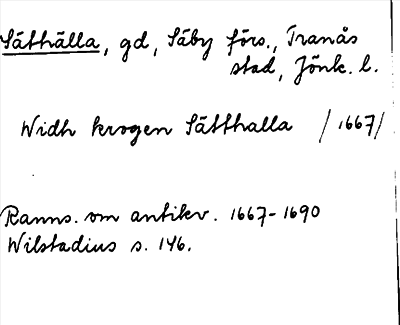 Sätthälla, gd, Säby förs., Tranås
stad, Jönk. l.
Widh krogen Sätthalla /1667/
Ranns. om antikv. 1667-1690
Wilstadius s. 146.